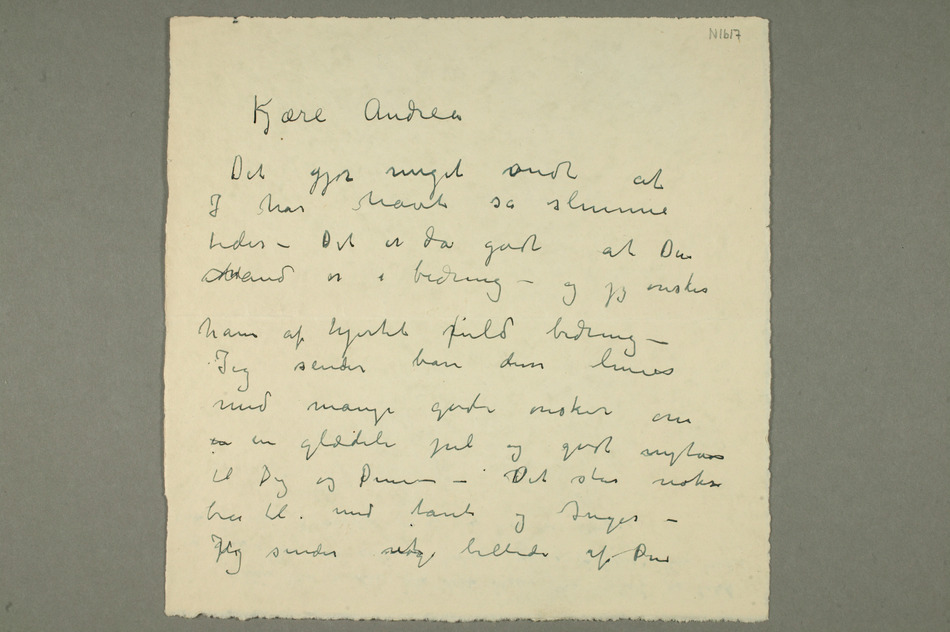 N1617
Kjære Andrea
Det gjør meget ondt at
I har havt så slemme
tider – Det er da godt at Din
Mand er i bedring – og jeg ønsker
ham af hjertet fuld bedring –
Jeg sender bare disse linies
med mange gode ønsker om
en glædelig jul og godt nytaar
til Dig og Dine – Det står nokså
bra til med tante og Inger –
Jeg sender billede af Din